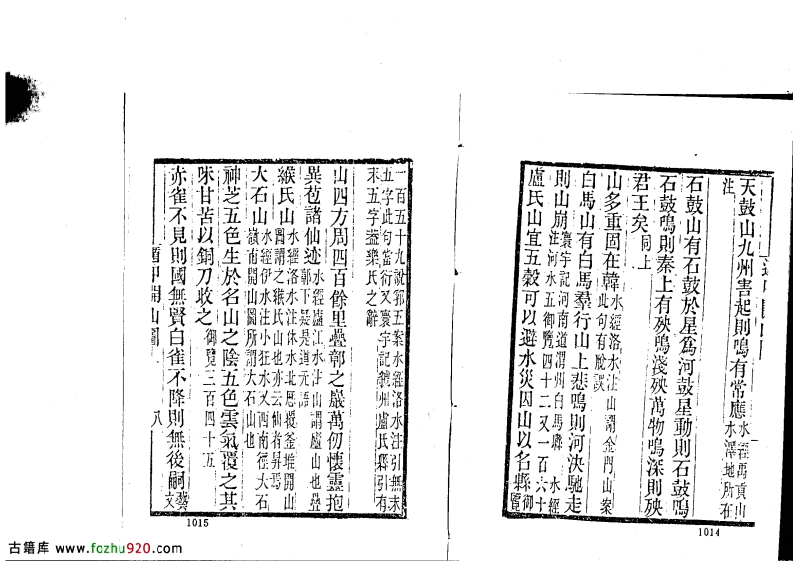 天鼓山九州害起則鳴有常應水經禹貢山
水澤地所在注
石鼓山有石鼓於星爲河鼓星動則石鼓鳴
石鼓鳴則秦上有殃鳴淺殃萬物鳴深則殃
君王矣同上
山多重固在韓水經洛水注山謂金門山案
此句有脫誤
白馬山有白馬羣行山上悲鳴則河決馳走
則山崩寰宇記河南道渭州白馬縣水經
注河水五御覽四十二又一百六十
盧氏山宜五穀可以避水災因山以名縣御覽
1014
一百五十九說郛五案水經洛水注引無末
五字此句當衍又寰宇記虢州盧氏縣引有
末五字蓋樂氏之辭
山四方周四百餘里疊鄣之巖萬仞懷靈抱
異苞諸仙迹水經廬江水注山謂廬山也疊
鄣下疑是道元語
緱氏山水經洛水注休水北歷覆釜堆開山
圖謂之緱氏山也亦云仙者昇焉
大石山水經伊水注小狂水又西南徑大石
嶺南開山圖所謂大石山也
神芝五色生於名山之陰五色雲氣覆之其
味甘苦以銅刀收之御覽二百四十五
赤雀不見則國無賢白雀不降則無後嗣藝文
遁甲開山圖
八
1015
古籍库 www.fozhu920.com